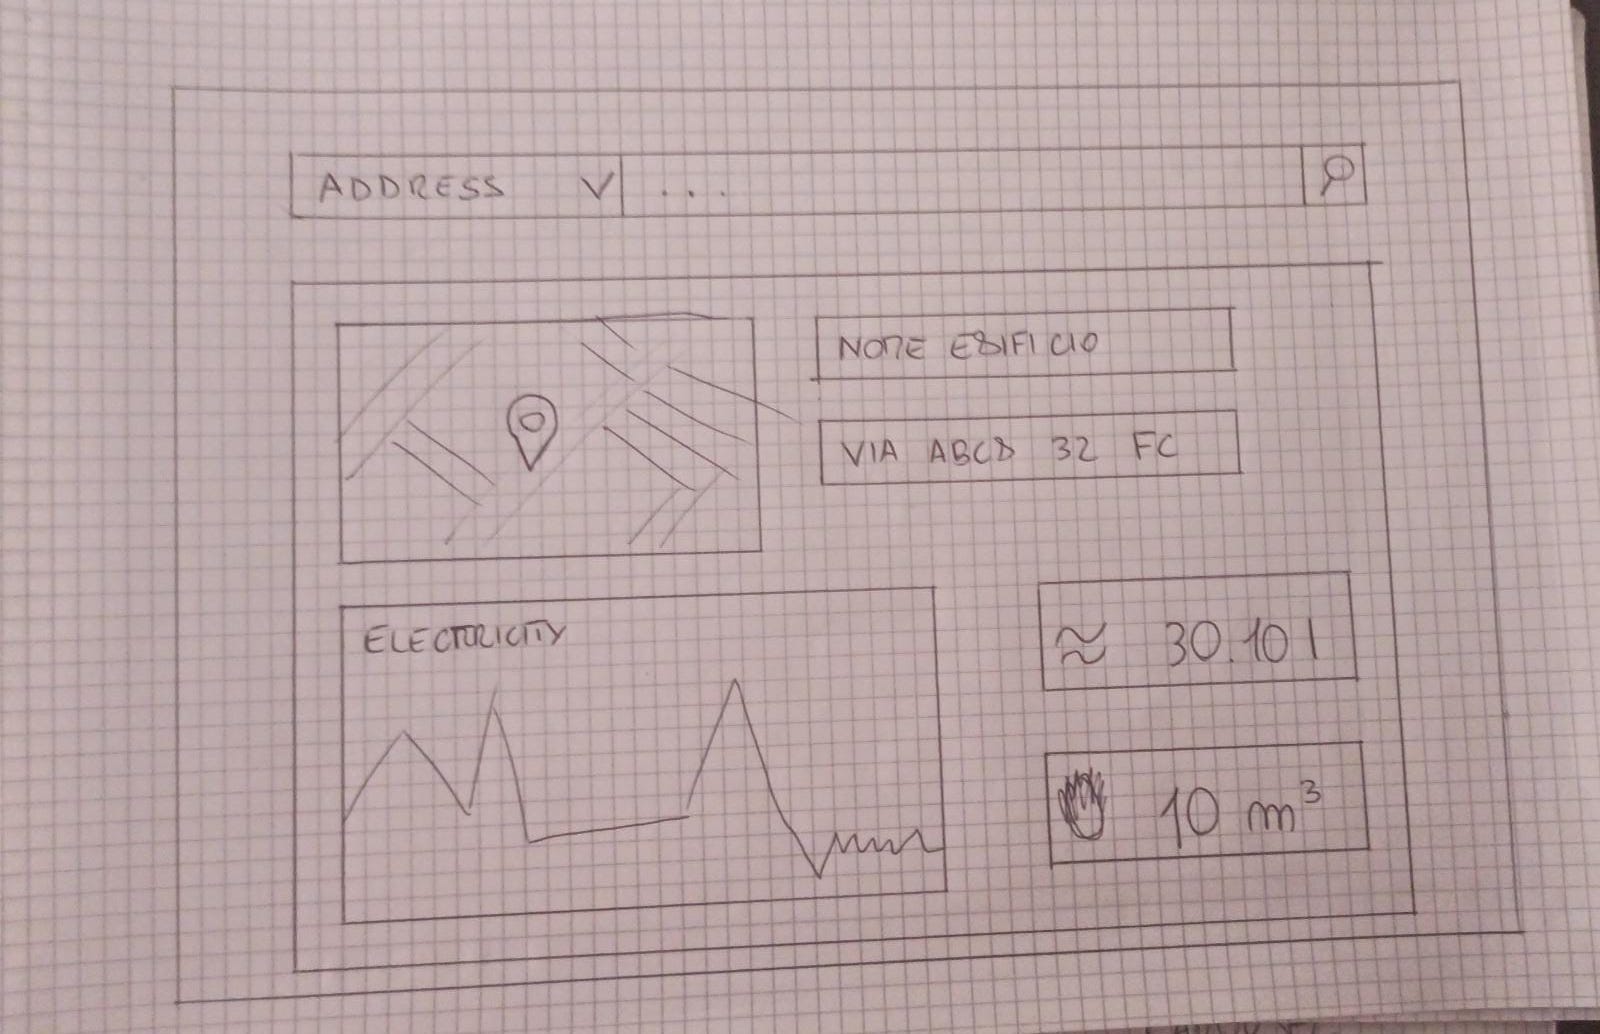 ADDRESS ...
NOME EDIFICIO
VIA ABCD 32 FC
ELECTRICITY
≈ 30.10 l
10 m³